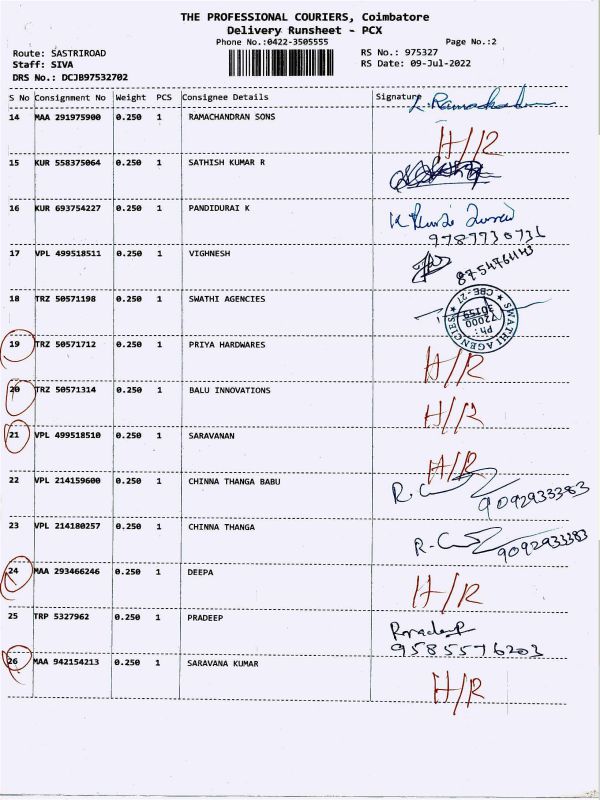 THE PROFESSIONAL COURIERS, Coimbatore
Delivery Runsheet - PCX
Phone No.:0422-3505555 Page No.:2
Route: SASTRIROAD RS No.: 975327
Staff: SIVA RS Date: 09-Jul-2022
DRS No.: DCJB97532702
S No Consignment No Weight PCS Consignee Details Signature
14 MAA 291975900 0.250 1 RAMACHANDRAN SONS
H/R
15 KUR 558375064 0.250 1 SATHISH KUMAR R
16 KUR 693754227 0.250 1 PANDIDURAI K
9787730731
17 VPL 499518511 0.250 1 VIGHNESH 8754761143
18 TRZ 50571198 0.250 1 SWATHI AGENCIES
SWATHI AGENCIES CBE-27 Ph:
19 TRZ 50571712 0.250 1 PRIYA HARDWARES H/R
20 TRZ 50571314 0.250 1 BALU INNOVATIONS H/R
21 VPL 499518510 0.250 1 SARAVANAN
H/R
22 VPL 214159600 0.250 1 CHINNA THANGA BABU R.C 9092933383
23 VPL 214180257 0.250 1 CHINNA THANGA R-C 9092933383
24 MAA 293466246 0.250 1 DEEPA H/R
25 TRP 5327962 0.250 1 PRADEEP Pradeep
9585576203
26 MAA 942154213 0.250 1 SARAVANA KUMAR H/R